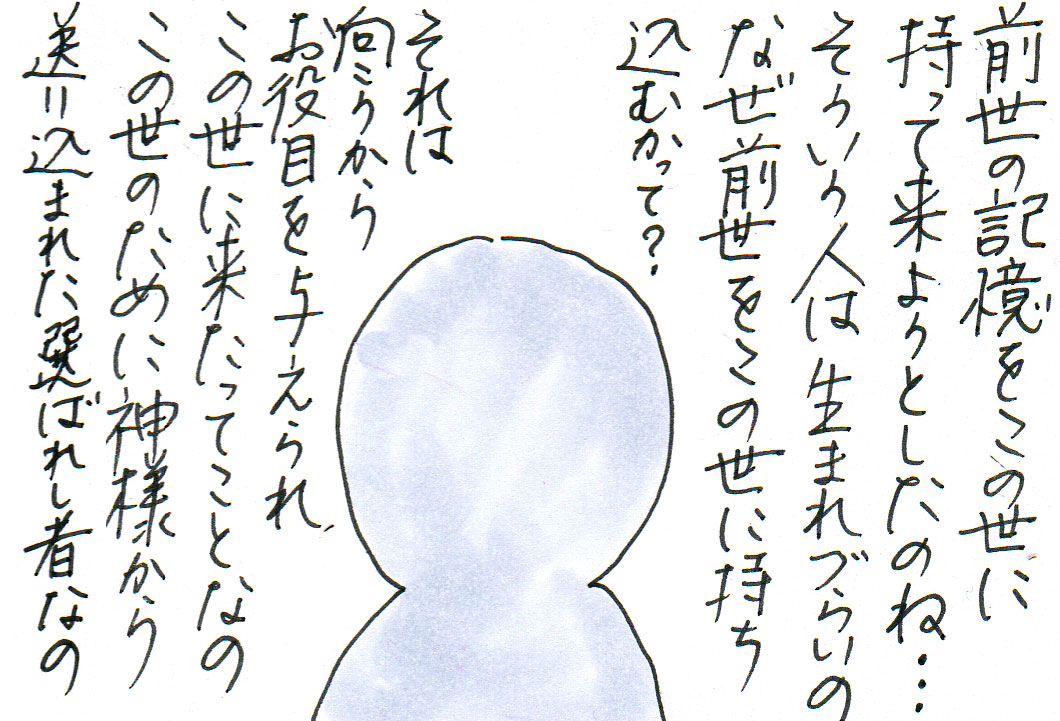 前世の記憶をこの世に
持って来ようとしたのね…
そういう人は生まれづらいの
なぜ前世をこの世に持ち
込むかって？
それは
向こうから
お役目を与えられ
この世に来たってことなの
この世のために神様から
送り込まれた選ばれし者なの